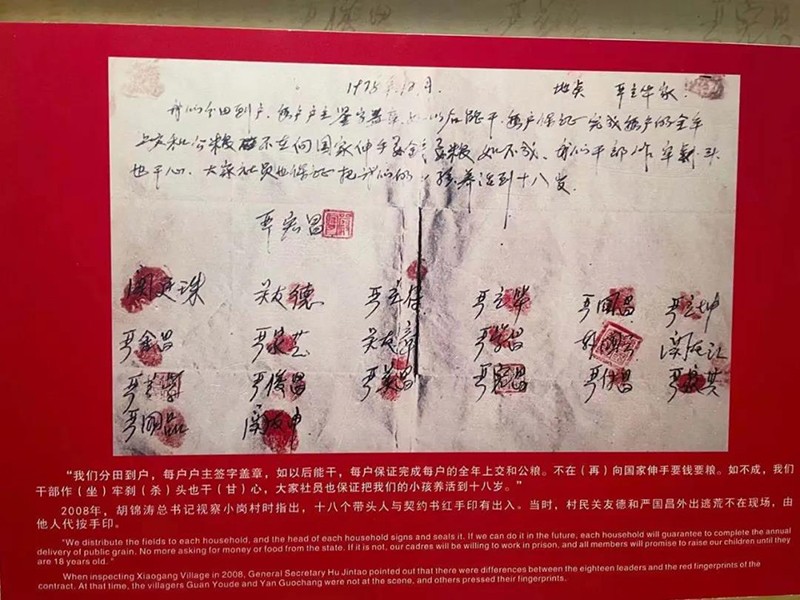 1978年12月 地点 严立华家
我们分田到户,每户户主签字盖章,如以后能干,每户保证完成每户的全年
上交和公粮,不在向国家伸手要钱要粮,如不成,我们干部作牢刹头
也干心,大家社员也保证把我们的小孩养活到十八岁。
严宏昌
关廷珠 关友德 严立符 严立华 严国昌 严立坤
严金昌 严家芝 关友章 严学昌 韩国云 关友江
严立学 严俊昌 严美昌 严宏昌 严付昌 严家其
严国品 关友申
“我们分田到户,每户户主签字盖章,如以后能干,每户保证完成每户的全年上交和公粮。不在(再)向国家伸手要钱要粮。如不成,我们
干部作(坐)牢刹(杀)头也干(甘)心,大家社员也保证把我们的小孩养活到十八岁。”
2008年,胡锦涛总书记视察小岗村时指出,十八个带头人与契约书红手印有出入。当时,村民关友德和严国昌外出逃荒不在现场,由
他人代按手印。
"We distribute the fields to each household, and the head of each household signs and seals it. If we can do it in the future, each household will guarantee to complete the annual
delivery of public grain. No more asking for money or food from the state. If it is not, our cadres will be willing to work in prison, and all members will promise to raise our children until they
are 18 years old. "
When inspecting Xiaogang Village in 2008, General Secretary Hu Jintao pointed out that there were differences between the eighteen leaders and the red fingerprints of the
contract. At that time, the villagers Guan Youde and Yan Guochang were not at the scene, and others pressed their fingerprints.